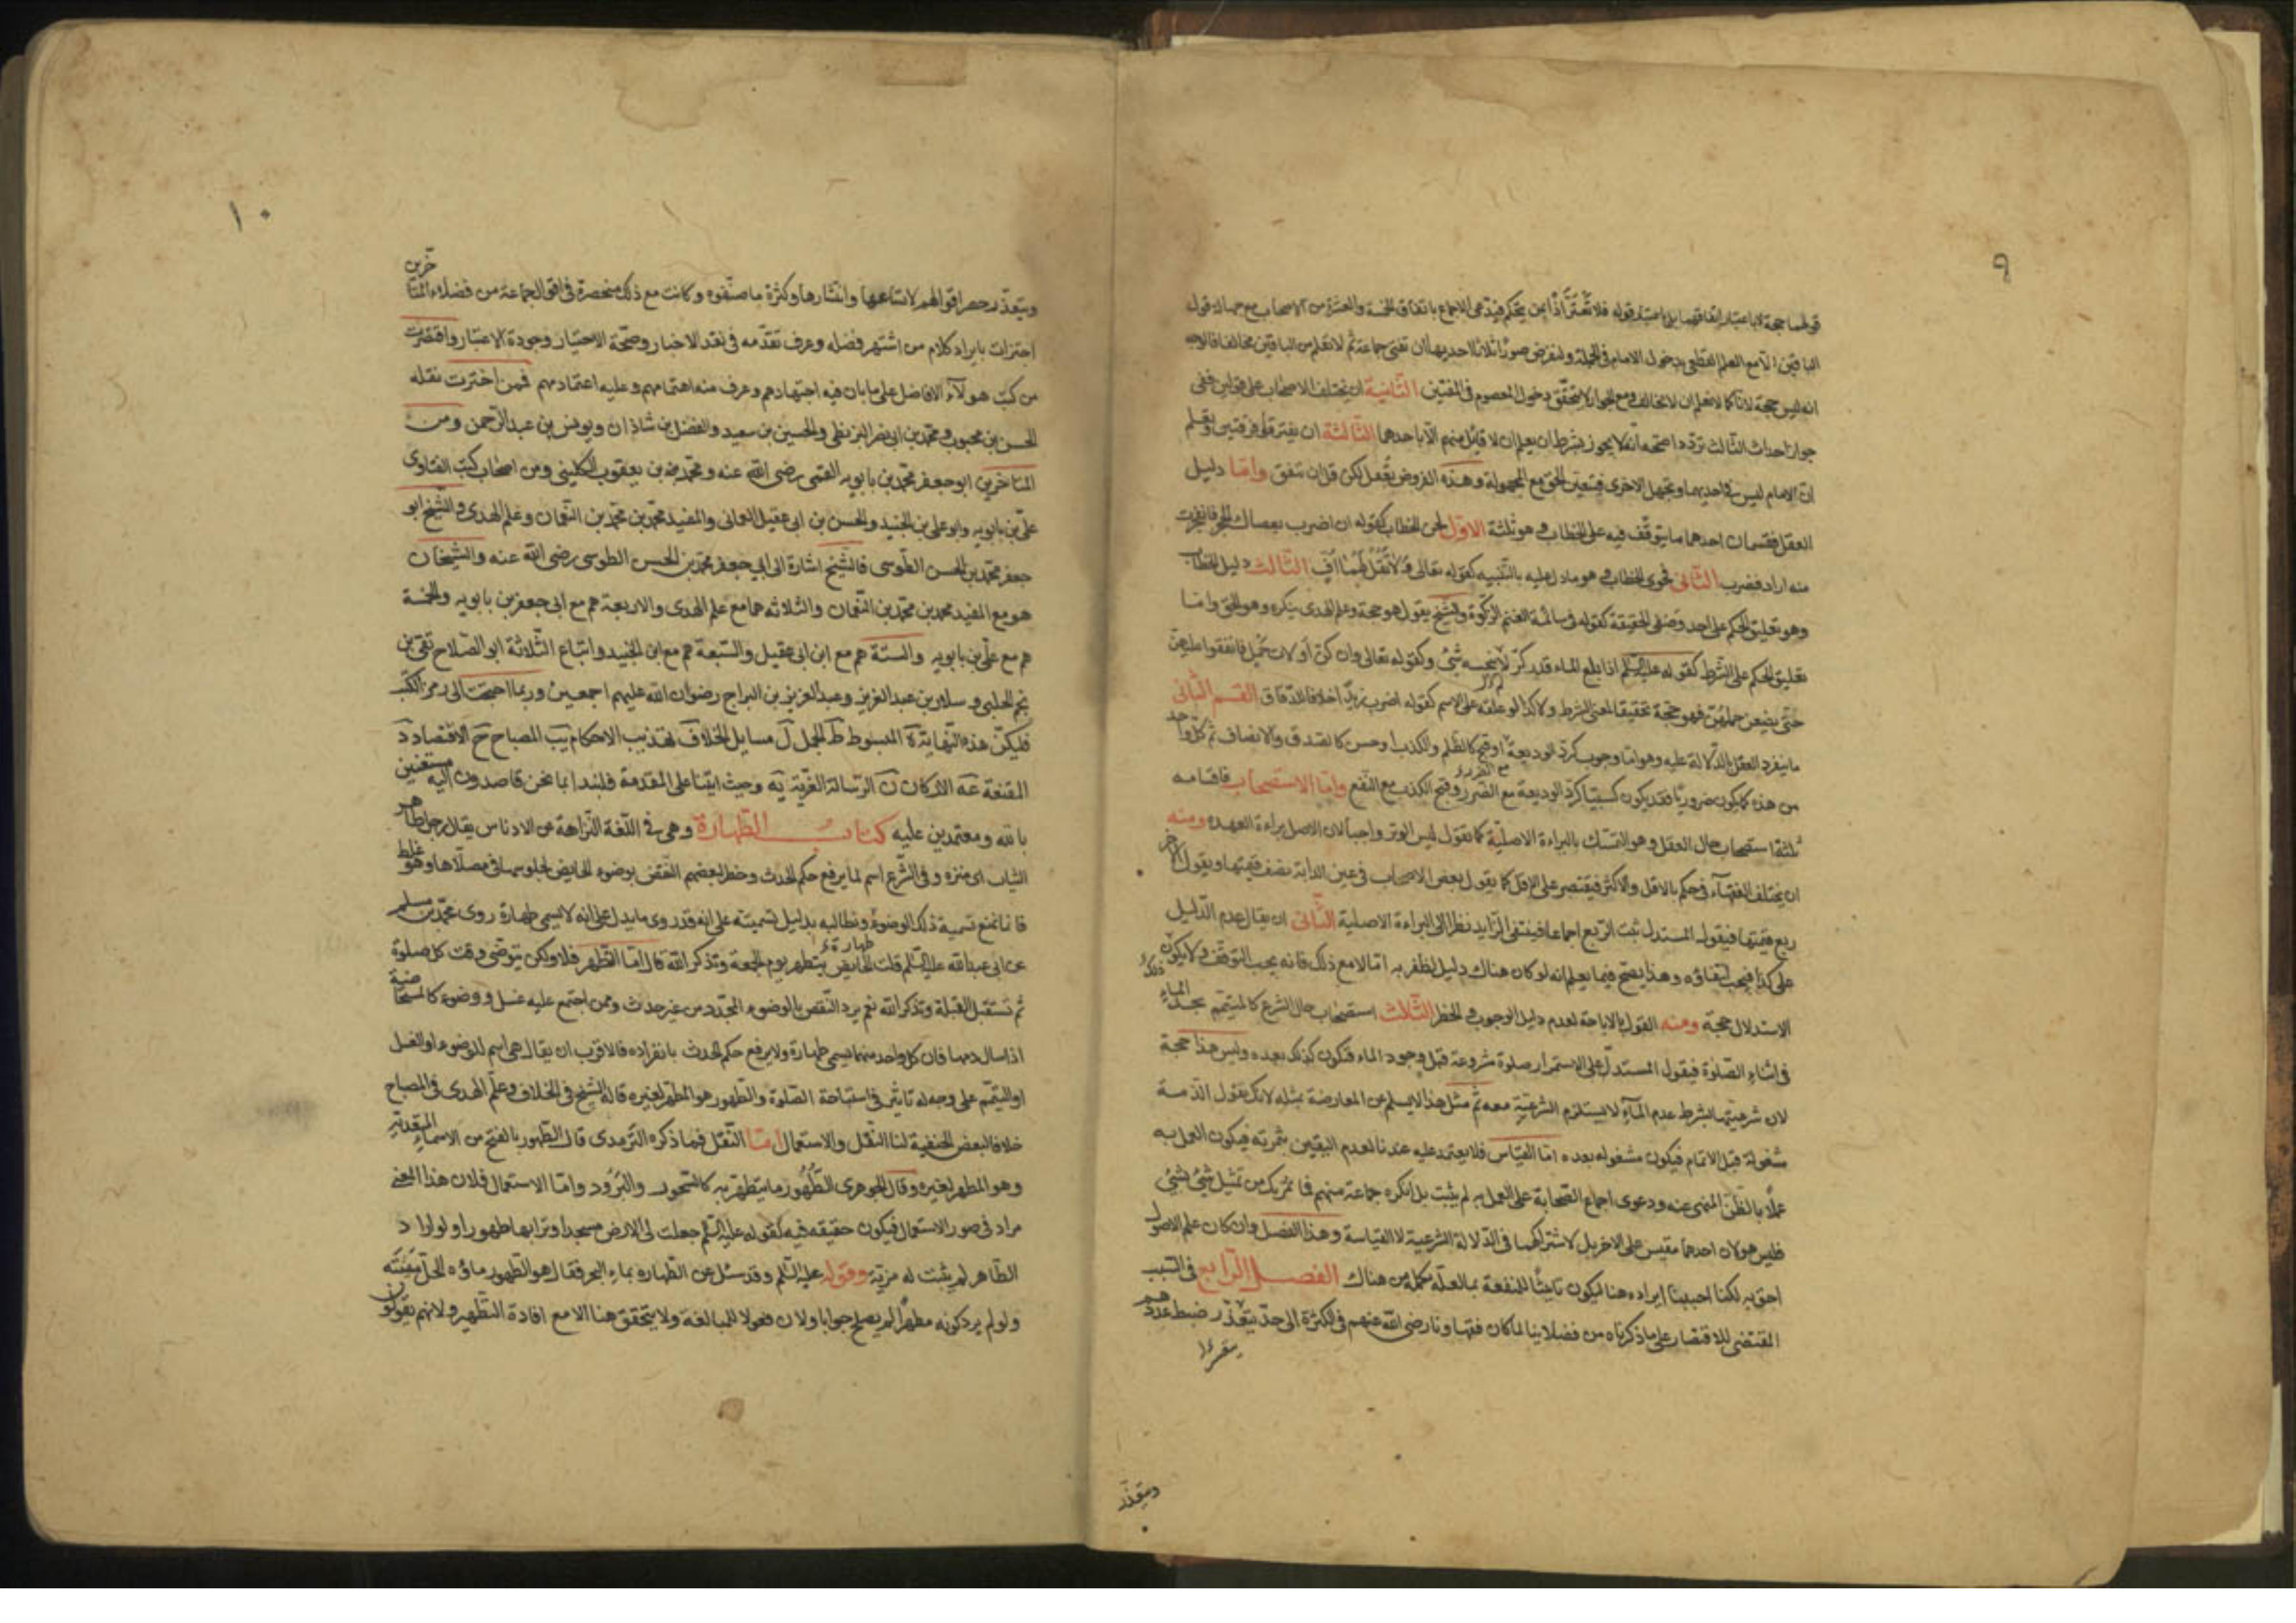 ٩
قولهما حجة لا باعتبار اتفاقهما بل باعتبار قوله فلا تغتر اذا بمن يتحكم فيدعى الاجماع باتفاق الخمسة والعشرة من الاصحاب مع جهالة قول
الباقين الا مع العلم القطعى بدخول الامام فى الجملة ولنفرض صورا ثلاثا احديها ان تفتى جماعة ثم لا نعلم من الباقين مخالفا فالوجه
انه ليس حجة لانا كما لا نعلم ان لا مخالف ومع الجواز لا يتحقق دخول المعصوم فى المفتين الثانية ان يختلف الاصحاب على قولين ففى
جواز احداث الثالث تردد اصحه انه لا يجوز بشرط ان يعلم ان لا قائل منهم الا باحدهما الثالثة ان يفترقوا فرقتين ويعلم
ان الامام ليس فى احديهما ويجهل الاخرى فيتعين الحق مع المجهولة وهذه الفروض تعقل لكن قل ان تتفق واما دليل
العقل فقسمان احدهما ما يتوقف فيه على الخطاب وهو ثلثة الاول لحن الخطاب كقوله ان اضرب بعصاك الحجر فانفجرت
منه اراد فضرب الثانى فحوى الخطاب وهو ما دل عليه بالتنبيه كقوله تعالى ولا تقل لهما اف الثالث دليل الخطاب
وهو تعليق الحكم على احد وصفى الحقيقة كقوله فى سائمة الغنم الزكوة والشيخ يقول هو حجة وعلم الهدى ينكره وهو الحق واما
تعليق الحكم على الشرط كقوله عليه السلم اذا بلغ الماء قدر كر لم ينجسه شئ وكقوله تعالى وان كن أولات حمل فانفقوا عليهن
حتى يضعن حملهن فهو حجة تحقيقا لمعنى الشرط ولا كذا لو علقه على الاسم كقوله اضرب زيدا خلافا للدقاق القسم الثانى
ما ينفرد العقل بالدلالة عليه وهو اما وجوب كرد الوديعة او قبح كالظلم والكذب او حسن كالصدق والانصاف ثم كل واحد
من هذه كما يكون ضروريا فقد يكون كسبيا كرد الوديعة مع الضرر وقبح الكذب مع النفع واما الاستصحاب فاقسامه
ثلثة استصحاب حال العقل وهو التمسك بالبراءة الاصلية كما نقول ليس الوتر واجبا لان الاصل براءة العهدة ومنه
ان يختلف الفقهاء فى حكم بالاقل والاكثر فيقتصر على الاقل كما يقول بعض الاصحاب فى عين الدابة نصف قيمتها ويقول الاخر
ربع قيمتها فيقول المستدل ثبت الربع اجماعا فينتفى الزايد نظرا الى البراءة الاصلية الثانى ان يقال عدم الدليل
على كذا فيجب انتفاؤه وهذا يصح فيما يعلم انه لو كان هناك دليل لظفر به اما لا مع ذلك فانه يجب التوقف ولا يكون ذلك
الاستدلال حجة ومنه القول بالاباحة لعدم دليل الوجوب والحظر الثلاث استصحاب حال الشرع كالمتيمم يجد الماء
فى اثناء الصلوة فيقول المستدل على الاستمرار صلوة مشروعة قبل وجود الماء فتكون كذلك بعده وليس هذا حجة
لان شرعيتها بشرط عدم الماء لا يستلزم الشرعية معه ثم مثل هذا لا يسلم عن المعارضة بمثله لانك تقول الذمة
مشغولة قبل الاتمام فيكون مشغوله بعده اما القياس فلا يعتمد عليه عندنا لعدم اليقين بثمرته فيكون العمل به
عملا بالظن المنهى عنه ودعوى اجماع الصحابة على العمل به لم يثبت بل انكره جماعة منهم فما يمر بك من تمثيل شئ لشئ
فليس هو لان احدهما مقيس على الاخر بل لاشتراكهما فى الدلالة الشرعية لا القياسة وهذا الفصل وان كان علم الاصول
احق به لكنا احببنا ايراده هنا ليكون تانيثا للمنفعة بما لعله مهمل من هناك الفصل الرابع فى السبب
المقتضى للاقتصار على ما ذكرناه من فضلاينا لما كان فقهاؤنا رضى الله عنهم فى الكثرة الى حد يتعذر ضبط عددهم
ويتعذر
١٠
ويتعذر حصر اقوالهم لاتساعها وانتشارها وكثرة ما صنفوه وكانت مع ذلك منحصرة فى اقوال جماعة من فضلاء المتاخرين
اجتزات بايراد كلام من اشتهر فضله وعرف تقدمه فى نقد الاخبار وصحة الاختيار وجودة الاعتبار واقتصرت
من كتب هولاء الافاضل على ما بان فيه اجتهادهم وعرف منه اهتمامهم وعليه اعتمادهم فممن اخترت نقله
الحسن بن محبوب ومحمد بن ابى نصر البزنطى والحسين بن سعيد والفضل بن شاذان ويونس بن عبد الرحمن ومن
المتاخرين ابو جعفر محمد بن بابويه القمى رضى الله عنه ومحمد بن يعقوب الكلينى ومن اصحاب كتب الفتاوى
على بن بابويه وابو على بن الجنيد والحسن بن ابى عقيل العمانى والمفيد محمد بن محمد بن النعمان وعلم الهدى والشيخ ابو
جعفر محمد بن الحسن الطوسى فالشيخ اشارة الى ابى جعفر محمد بن الحسن الطوسى رضى الله عنه والشيخان
هو مع المفيد محمد بن محمد بن النعمان والثلاثه هما مع علم الهدى والاربعة هم مع ابى جعفر بن بابويه والخمسة
هم مع على بن بابويه والستة هم مع ابن ابى عقيل والسبعة هم مع ابن الجنيد واتباع الثلاثة ابو الصلاح تقى بن
نجم الحلبى وسلار بن عبد العزيز وعبد العزيز بن البراج رضوان الله عليهم اجمعين وربما احتجت الى رمز الكتب
فليكن هذه النهاية ية المبسوط ط الجمل ل مسايل الخلاف ف تهذيب الاحكام يب المصباح ح الاقتصاد د
المقنعة عه الاركان ن الرسالة الغرية يه وحيث اتينا على المقدمة فلنبدا بما نحن قاصدون اليه مستعينين
بالله ومعتمدين عليه كتاب الطهارة وهى فى اللغة النزاهة من الادناس يقال رجل طاهر
الثياب اى منزه وفى الشرع اسم لما يرفع حكم الحدث وخطر لبعضهم النقض بوضوء الحايض لجلوسها فى مصلاها وهو غلط
فانا نمنع تسمية ذلك الوضوء ونطالبه بدليل تسميته على انه قد روى ما يدل على انه لا يسمى طهارة روى محمد بن مسلم
عن ابى عبد الله عليه السلم قلت الحايض يتطهر يوم الجمعة وتذكر الله قال اما الطهر فلا ولكن يتوضى وقت كل صلوة
ثم تستقبل القبلة وتذكر الله نعم يرد النقض بالوضوء المجدد من غير حدث وممن اجتمع عليه غسل ووضوء كالمستحاضة
اذا سال دمها فان كل واحد منهما يسمى طهارة ولا يرفع حكم الحدث بانفراده فالاقرب ان يقال هى اسم للوضوء او الغسل
او التيمم على وجه له تاثير فى استباحة الصلوة والطهور هو المطهر لغيره قاله الشيخ فى الخلاف وعلم الهدى فى المصباح
خلافا لبعض الحنفية لنا النقل والاستعمال اما النقل فما ذكره الترمدى قال الطهور بالفتح من الاسماء المتعدية
وهو المطهر لغيره وقال الجوهرى الطهور ما يتطهر به كالسحور والبرود واما الاستعمال فلان هذا المعنى
مراد فى صور الاستعمال فيكون حقيقه فيه كقوله عليه السلم جعلت لى الارض مسجدا وترابها طهورا ولو اراد
الطاهر لم يثبت له مزية وقوله عليه السلم وقد سئل عن الطهاره بماء البحر فقال هو الطهور ماؤه الحل ميتته
ولو لم يرد كونه مطهرا لم يصلح جوابا ولان فعولا للمبالغة ولا يتحقق هنا الا مع افادة التطهير ولانهم يقولون